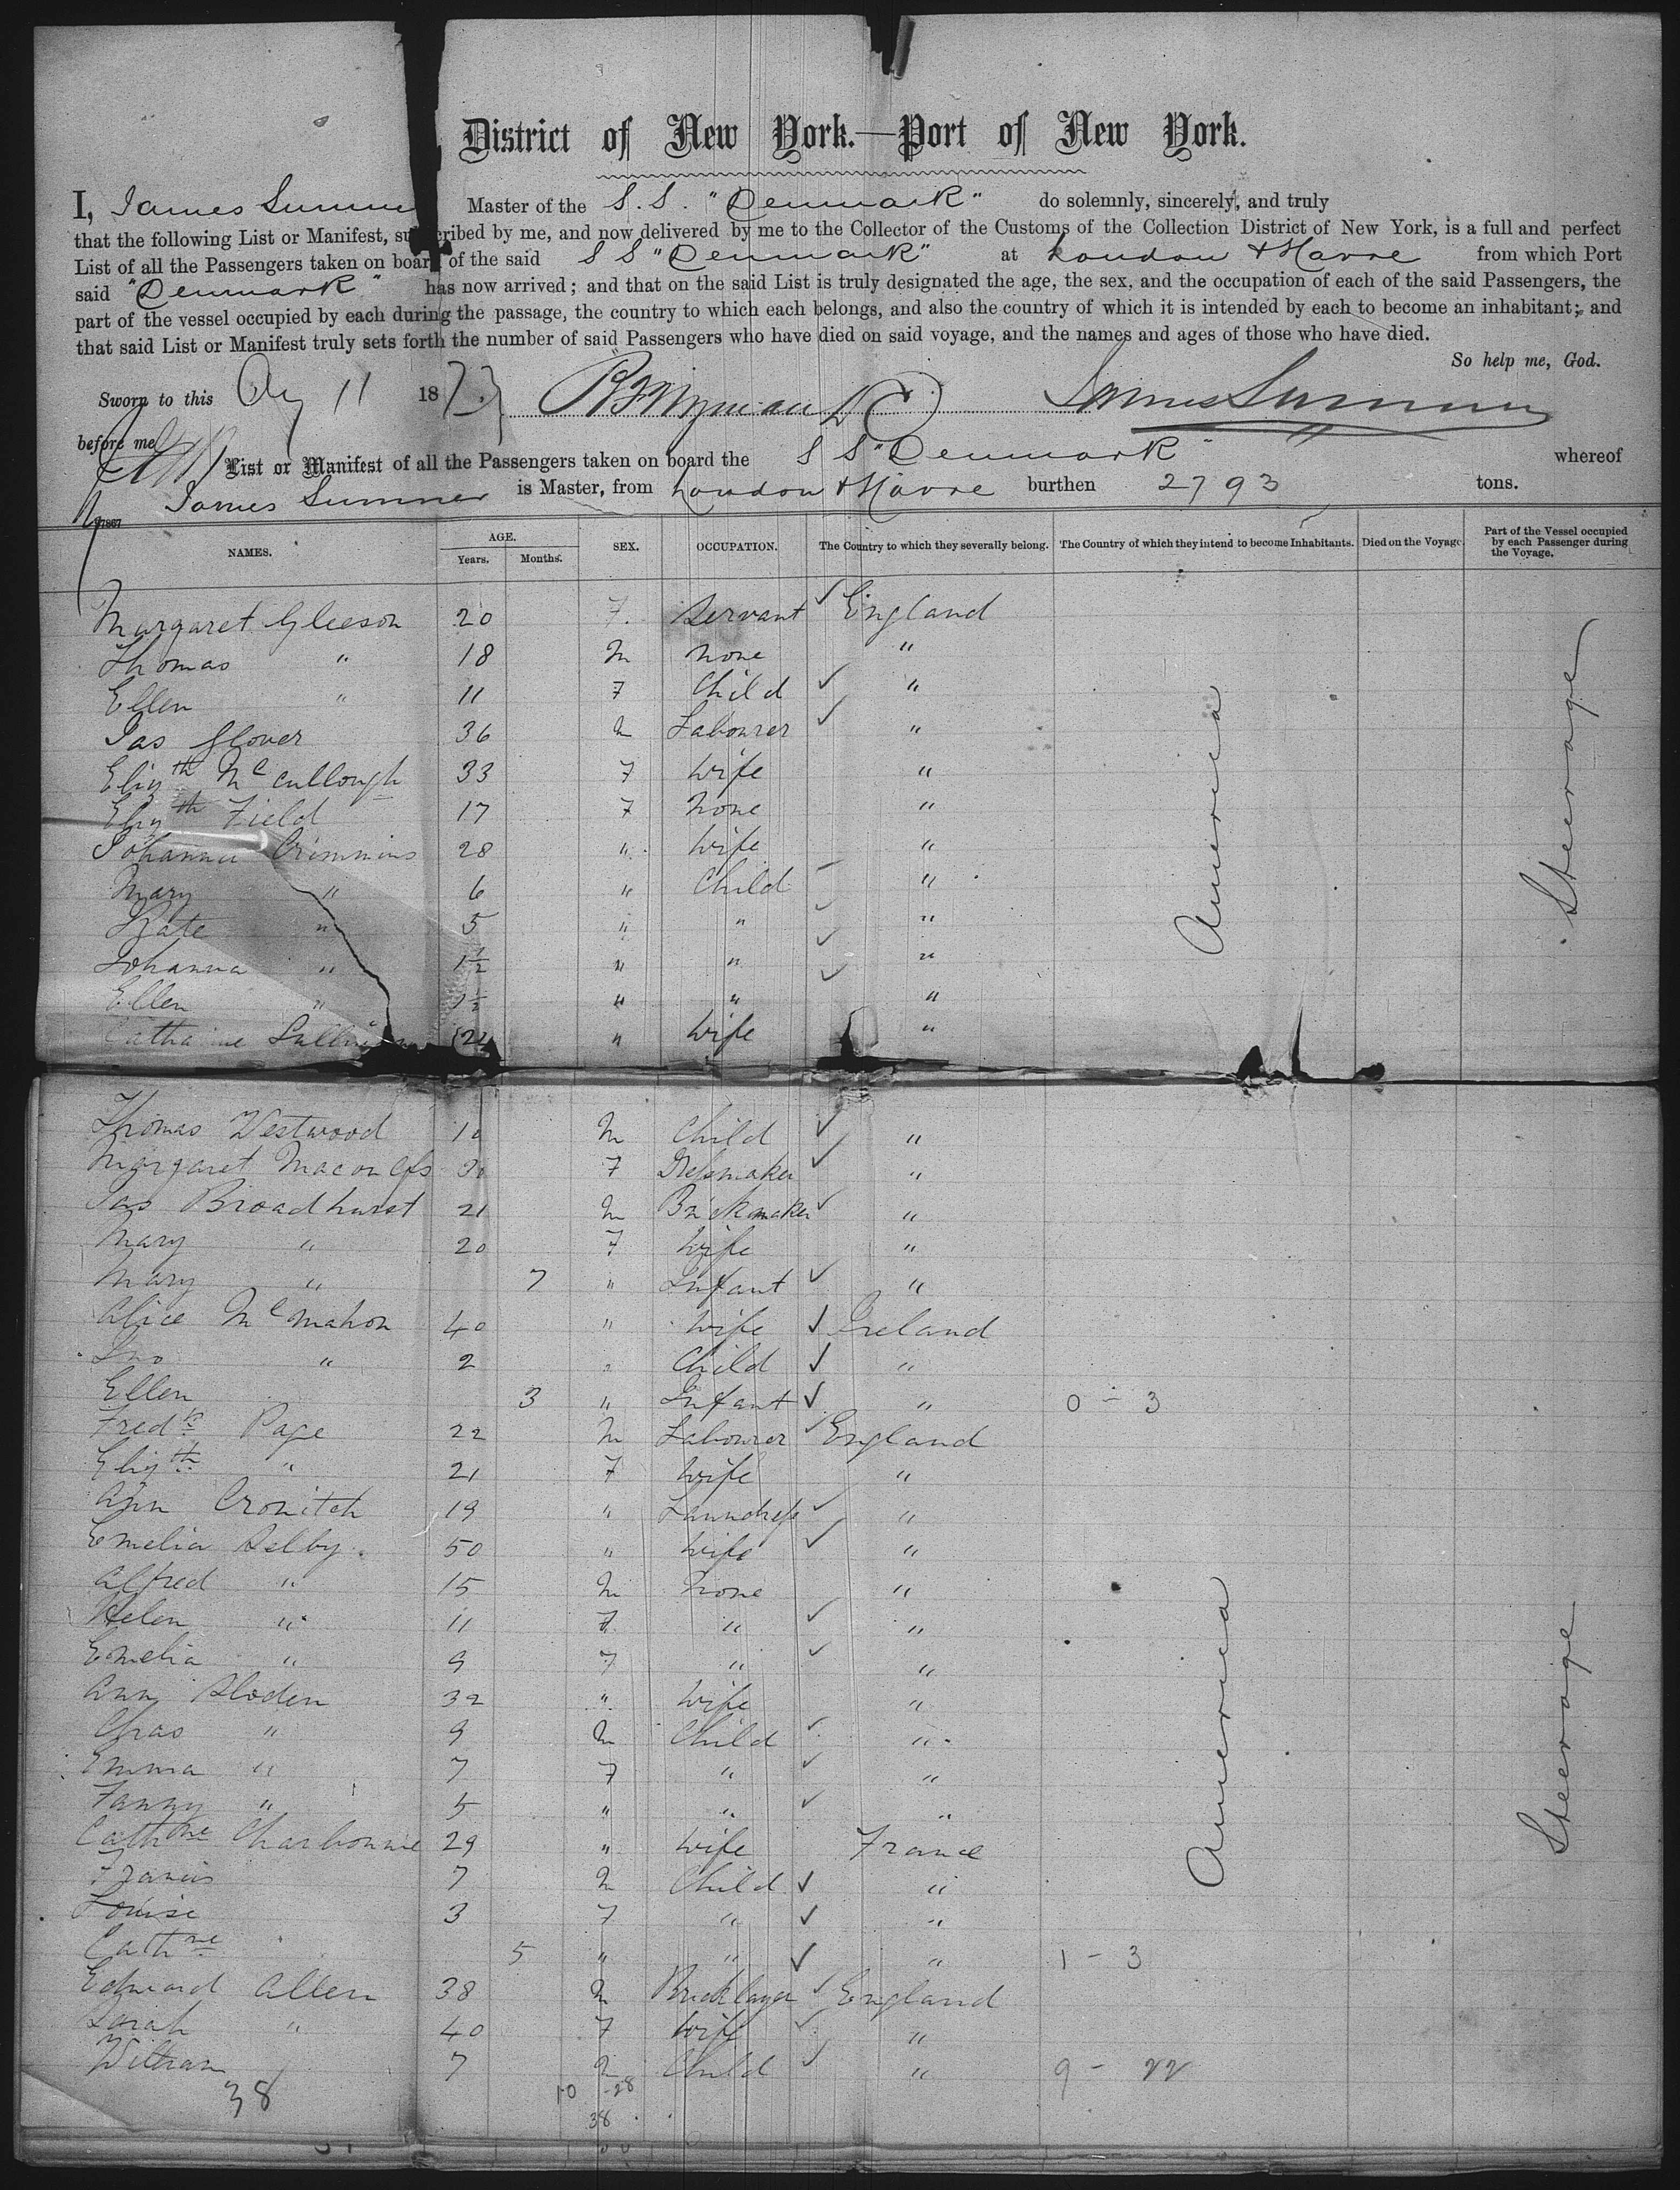 District of New York.—Port of New York.
I, James Summer Master of the S.S. "Denmark" do solemnly, sincerely, and truly
that the following List or Manifest, subscribed by me, and now delivered by me to the Collector of the Customs of the Collection District of New York, is a full and perfect
List of all the Passengers taken on board of the said S S "Denmark" at London & Havre from which Port
said "Denmark" has now arrived; and that on the said List is truly designated the age, the sex, and the occupation of each of the said Passengers, the
part of the vessel occupied by each during the passage, the country to which each belongs, and also the country of which it is intended by each to become an inhabitant; and
that said List or Manifest truly sets forth the number of said Passengers who have died on said voyage, and the names and ages of those who have died.
So help me, God.
Sworn to this Aug 11 1873 James Summer
before me
List or Manifest of all the Passengers taken on board the S S "Denmark" whereof
James Summer is Master, from London & Havre burthen 2793 tons.
NAMES. AGE. Years. Months. SEX. OCCUPATION. The Country to which they severally belong. The Country of which they intend to become Inhabitants. Died on the Voyage. Part of the Vessel occupied by each Passenger during the Voyage.
Margaret Gleeson 20 F. Servant England
Thomas " 18 M none "
Ellen " 11 F Child "
Jas Glover 36 M Labourer "
Elizth McCullough 33 F Wife "
Elizth Field 17 F none "
Johanna Crimmins 28 " Wife "
Mary " 6 " Child "
Kate " 5 " " "
Johanna " 1½ " " "
Ellen " 1½ " " "
Catharine " Wife "
America
Steerage
Thomas Westwood 10 M Child "
Margaret F Dressmaker "
Jas Broadhurst 21 M Brickmaker "
Mary " 20 F Wife "
Mary " 7 " Infant "
Alice McMahon 40 " Wife Ireland
Jno " 2 " Child "
Ellen 3 " Infant " 0 - 3
Fredk Page 22 M Labourer England
Elizth " 21 F Wife "
Ann Cronitch 19 " Laundress "
Emelia Selby 50 " Wife "
Alfred " 15 M none "
Helen " 11 F " "
Emelia " 9 F " "
Ann Sloden 32 " Wife "
Chas " 9 M Child "
Emma " 7 F " "
Fanny " 5 " " "
Cathne Charbonnie 29 " Wife France
Francis 7 M Child "
Louise 3 F " "
Cathne 5 " " " 1 - 3
Edward Allen 38 M Bricklayer England
Sarah " 40 F Wife "
William 7 M Child " 9 - 22
America
Steerage
38 10 -28
38